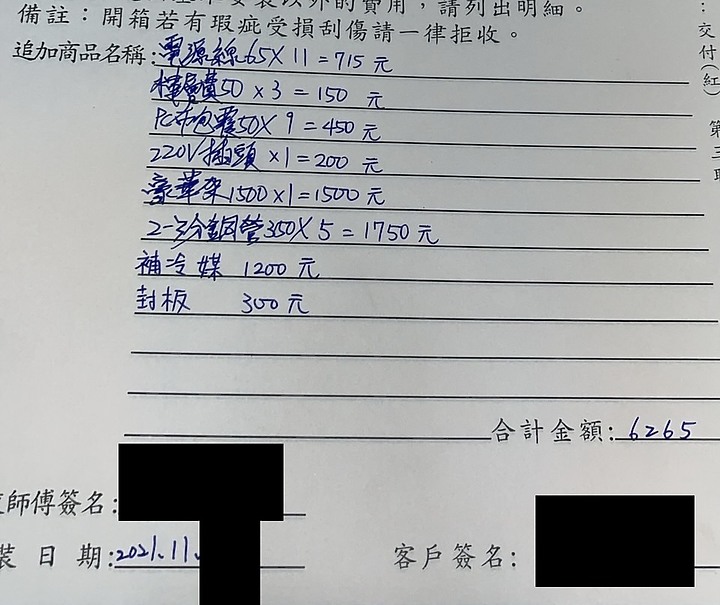 安裝以外的費用，請列出明細。
備註：開箱若有瑕疵受損刮傷請一律拒收。
追加商品名稱：電源線65X11=715元
50x3=150元
50X9=450元
220V插頭x1=200元
豪華架1500x1=1500元
2-3分銅管350X5=1750元
補冷媒 1200元
封板 300元
合計金額：6265
師傅簽名：
裝日期：2021.11.
客戶簽名：
：交付(紅)
第三聯